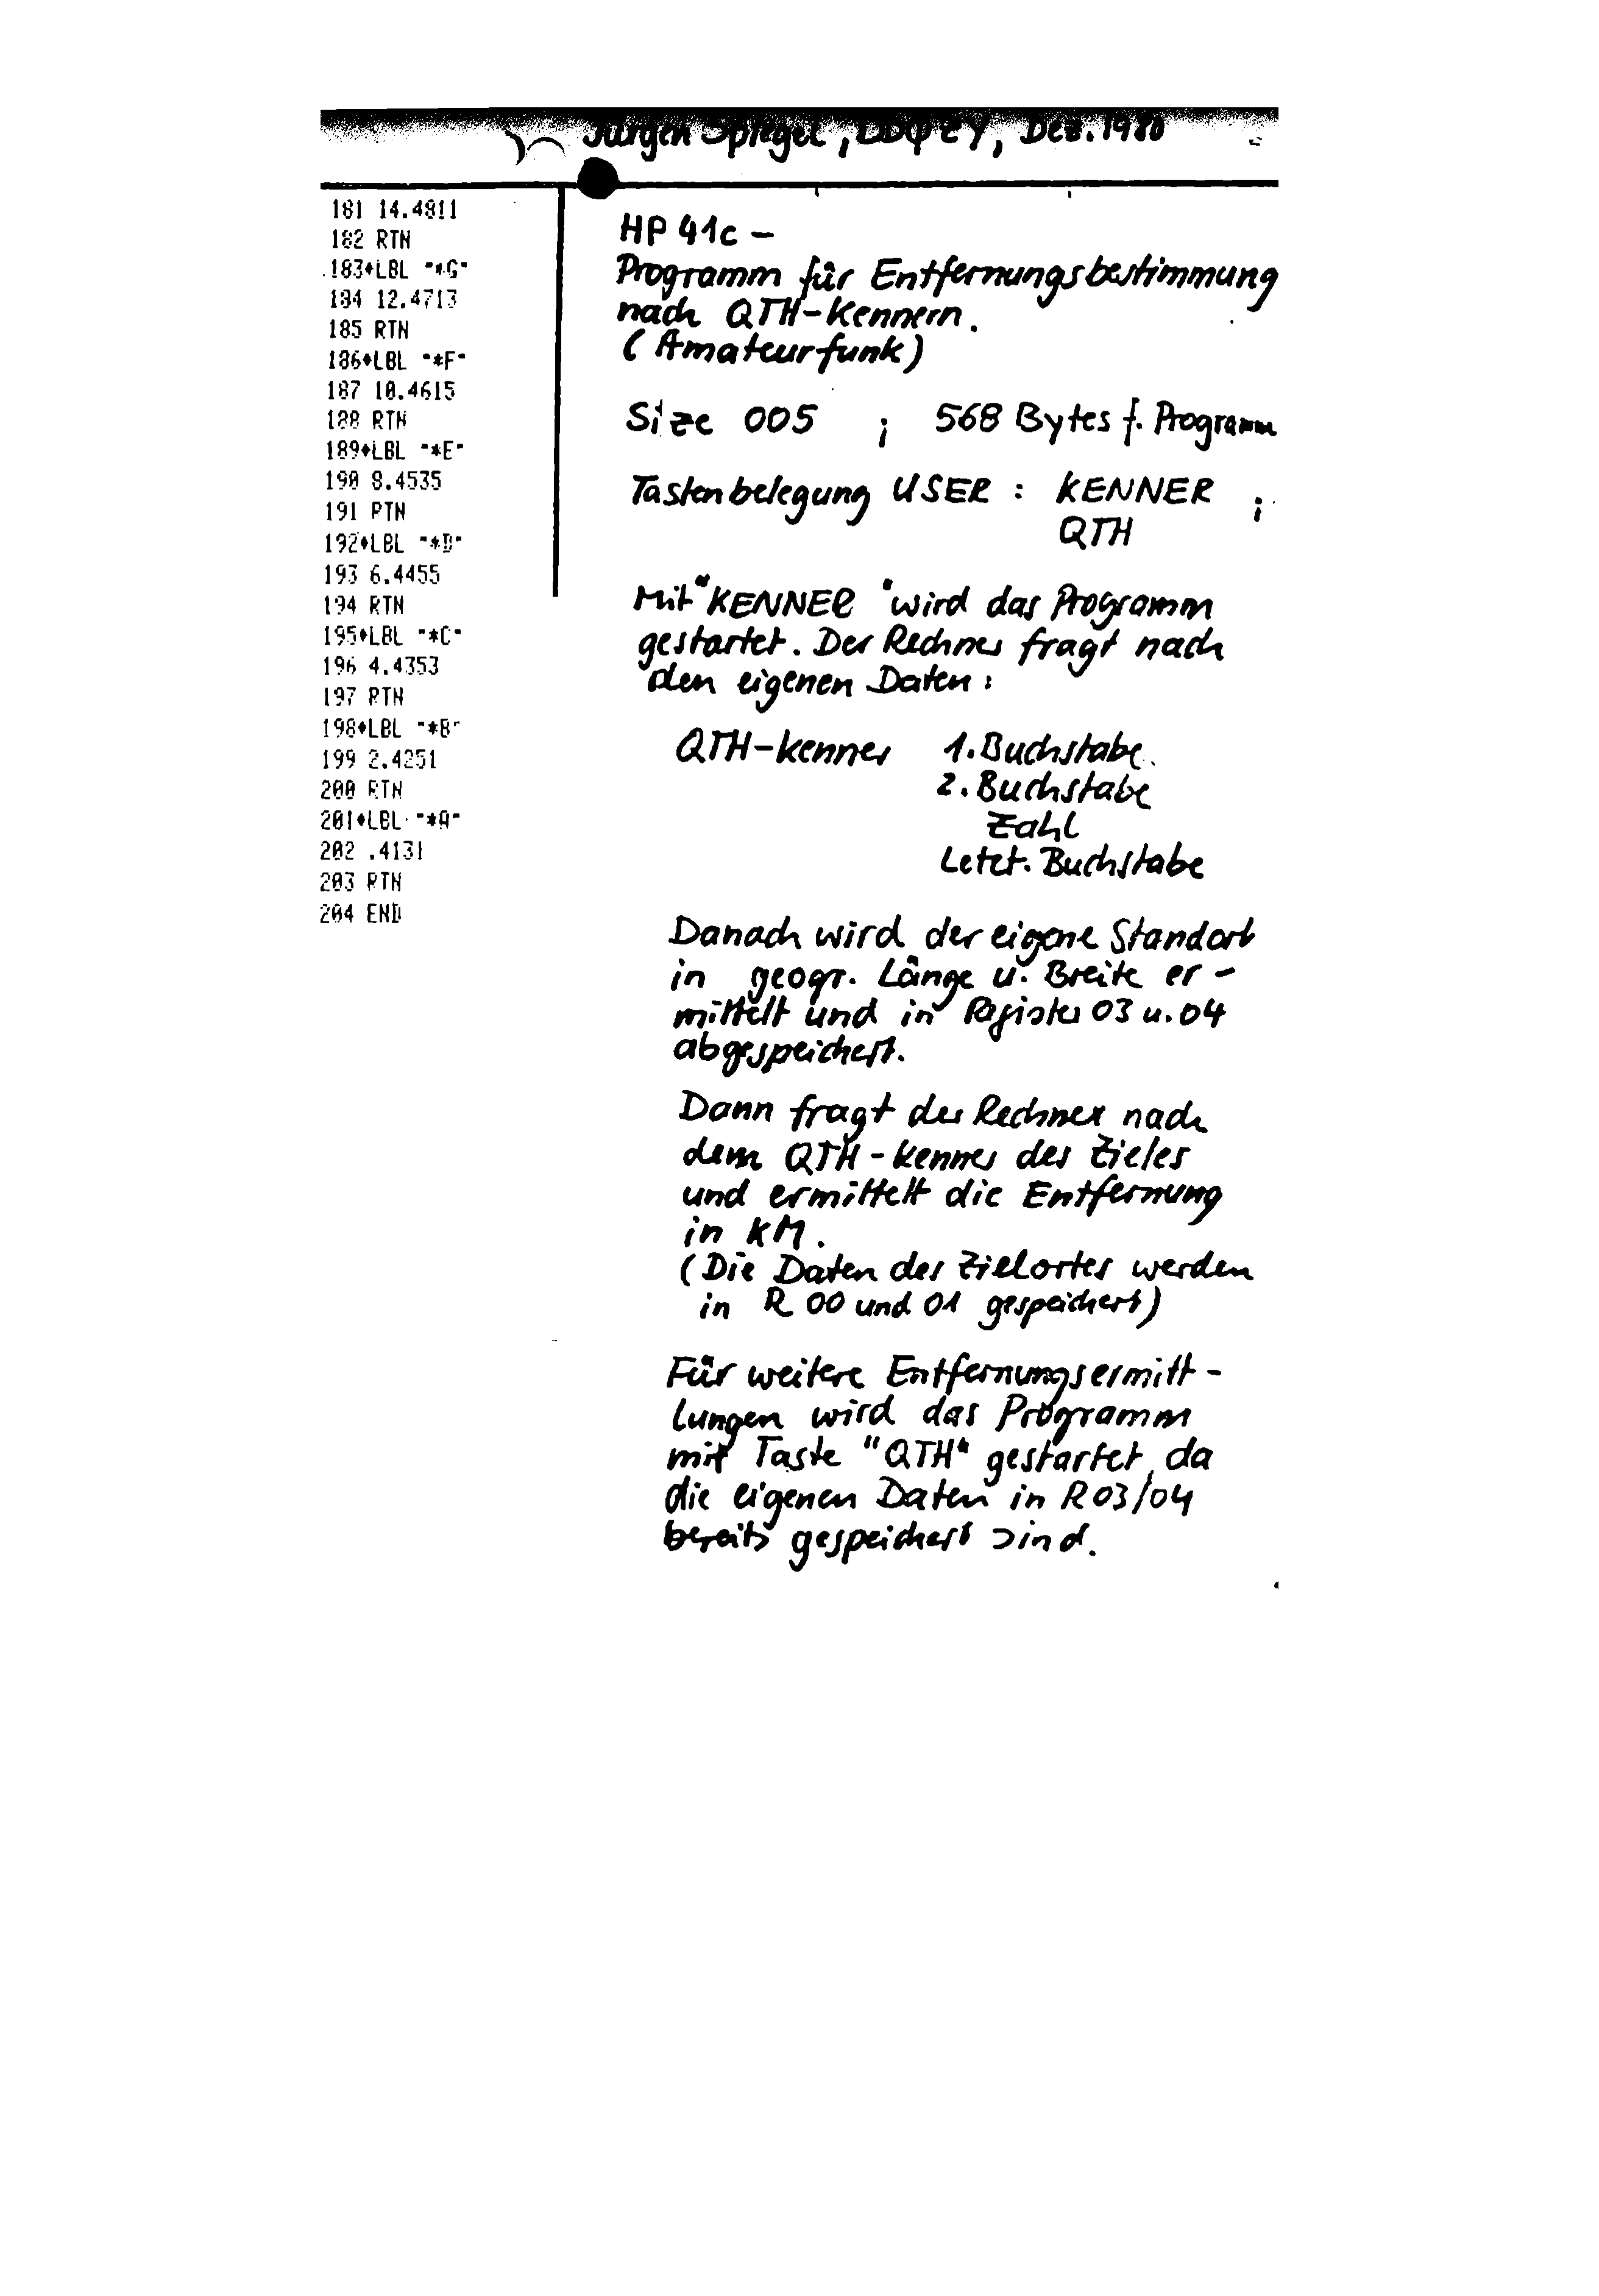 Jürgen Spiegel, Dez. 1980
181 14.4811
182 RTN
183♦LBL "*G"
184 12.4713
185 RTN
186♦LBL "*F"
187 10.4615
188 RTN
189♦LBL "*E"
190 8.4535
191 RTN
192♦LBL "*D"
193 6.4455
194 RTN
195♦LBL "*C"
196 4.4353
197 RTN
198♦LBL "*B"
199 2.4251
200 RTN
201♦LBL "*A"
202 .4131
203 RTN
204 END
HP 41c -
Programm für Entfernungsbestimmung
nach QTH-Kennern.
(Amateurfunk)
Size 005 ; 568 Bytes f. Programm
Tastenbelegung USER : KENNER ;
QTH
Mit "KENNER" wird das Programm
gestartet. Der Rechner fragt nach
den eigenen Daten:
QTH-Kenner 1. Buchstabe
2. Buchstabe
Zahl
Letzt. Buchstabe
Danach wird der eigene Standort
in geogr. Länge u. Breite er-
mittelt und in Register 03 u. 04
abgespeichert.
Dann fragt der Rechner nach
dem QTH-Kenner des Zieles
und ermittelt die Entfernung
in KM.
(Die Daten des Zielortes werden
in R 00 und 01 gespeichert)
Für weitere Entfernungsermitt-
lungen wird das Programm
mit Taste "QTH" gestartet, da
die eigenen Daten in R03/04
bereits gespeichert sind.